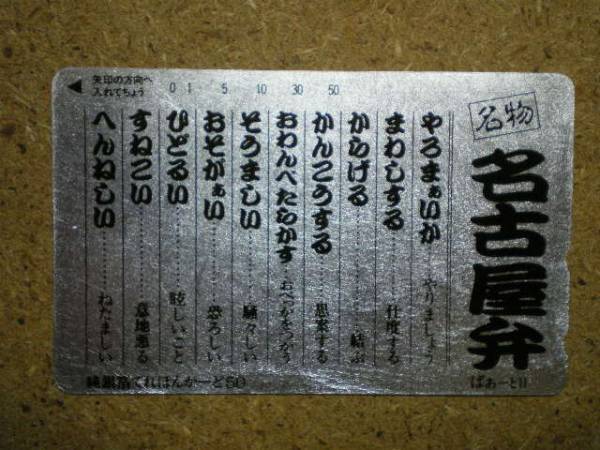 矢印の方向へ
入れてちょう
0 1 5 10 30 50
名物
名古屋弁
ぱあーとII
やろまぁいか……やりましょう
まわしする……仕度する
からげる……結ぶ
かんこうする……思案する
おわんべたらかす…おべっかをつかう
そうましい……騒々しい
おそがぁい……恐ろしい
ひどるい……眩しいこと
すねこい……意地悪る
へんねしい……ねたましい
純銀箔てれほんかーど50